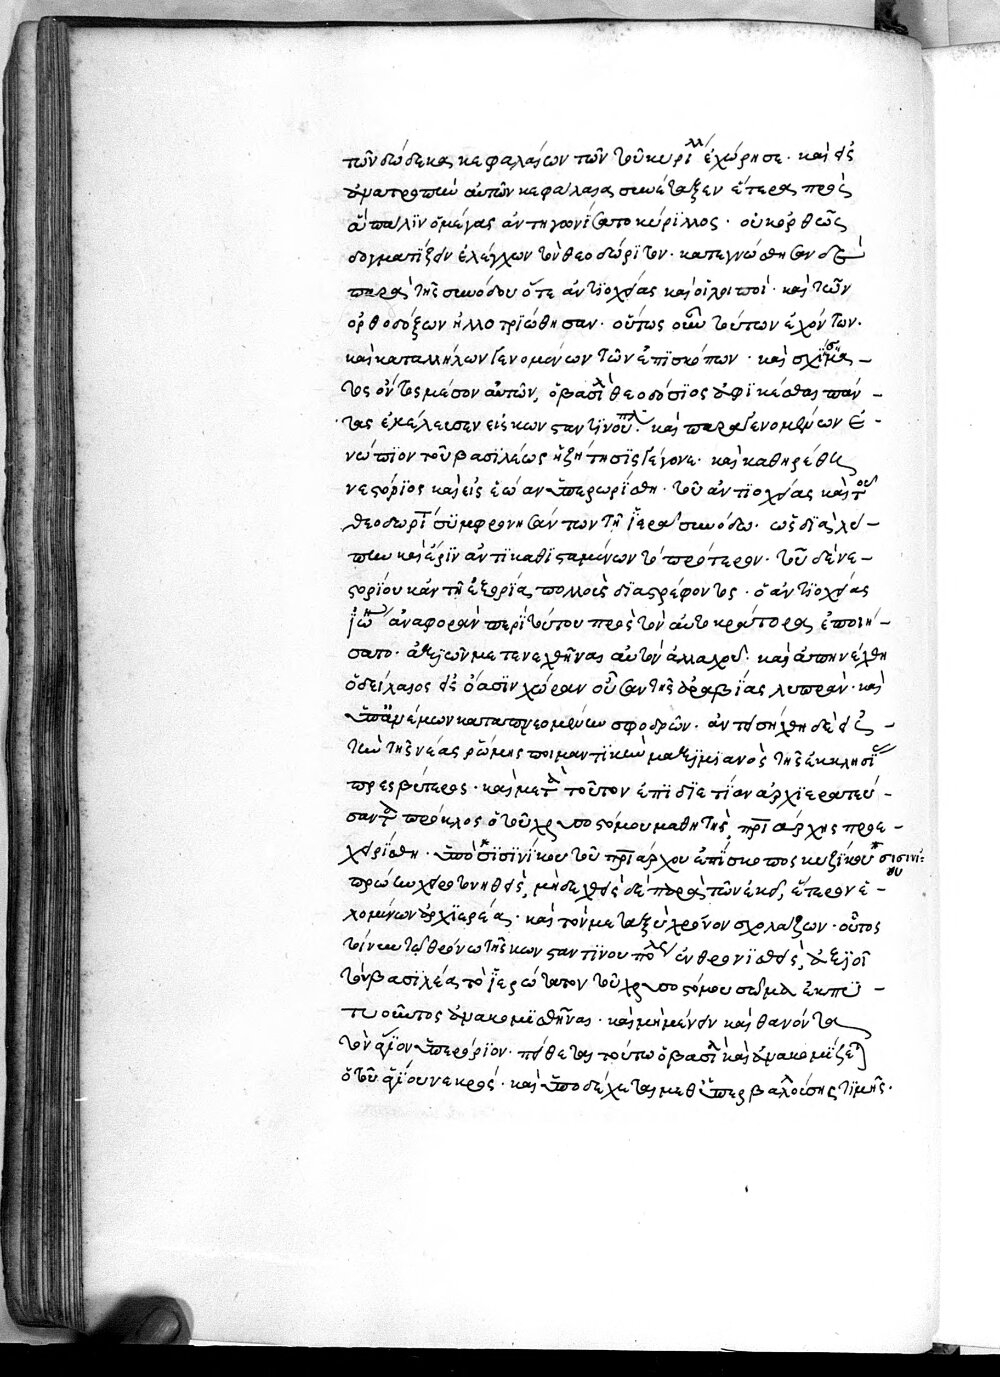 τῶν δώδεκα κεφαλαίων τῶν τοῦ κυρίλλ ἐχώρησε· καὶ εἰς
ἀνατροπὴν αὐτῶν κεφάλαια συνέταξεν ἕτερα πρὸς
ἃ πάλϊν ὁ μέγας ἀντηγωνίσατο κύρϊλλος· οὐκ ὀρθῶς
δογματίζειν ἐλέγχων τὸν θεοδώρϊτον· κατεγνώσθησαν δὲ
παρὰ τῆς συνόδου ὅτε ἀντϊοχείας καὶ οἱ λοιποί· καὶ τῶν
ὀρθοδόξων ἠλλοτρϊώθησαν· οὕτως οὖν τούτων ἐχόντων·
καὶ καταλλήλων γενομένων τῶν ἐπϊσκόπων· καὶ σχίσμα-
τος ὄντος μέσον αὐτῶν, ὁ βασιλ θεοδόσϊος ἀφϊκέσθαι πάν-
τας ἐκέλευσεν εἰς κωνσταντϊνούπλ· καὶ παραγενομένων ἐ-
νώπϊον τοῦ βασϊλέως ἡ ζήτησϊς γέγονε· καὶ καθηρέθη
νεστόρϊος καὶ εἰς ἑῴαν ὑπερωρίσθη· τοῦ ἀντϊοχείας καὶ τοῦ
θεοδωρΐτ συμφρονησάντων τῇ ἱερᾷ συνόδω· ὡς διαλεί-
πειν καὶ ἔρϊν ἀντϊκαθϊσταμένων τὸ πρότερον· τοῦ δὲ νε-
στορίου κἀν τῇ ἐξορίᾳ πολλοὺς δϊαστρέφοντος· ὁ ἀντϊοχείας
ἰω ἀναφορὰν περὶ τούτου πρὸς τὸν αὐτοκράτορα ἐποιή-
σατο· ἀξιῶν μετενεχθῆναι αὐτὸν ἀλλαχοῦ· καὶ ἀπηνέχθη
ὁ δείλαιος εἰς ὄασϊν χώραν οὖσαν τῆς ἀραβίας λυπράν· καὶ
ὑπ' ἀνέμων καταπνεομένην σφοδρῶν· ἀντεισήχθη δὲ εἰς
τὴν τῆς νέας ῥώμης ποιμαντϊκὴν μαξϊμϊανὸς τῆς ἐκκλησΐ
πρεσβύτερος· καὶ μετὰ τοῦτον ἐπὶ δϊετίαν ἀρχϊερατεύ-
σαντα πρόκλος ὁ τοῦ χρυσοστόμου μαθητής, πρϊάρχης προε-
χειρίσθη· ὑπὸ σϊσϊνίκου τοῦ πρϊάρχου ἐπΐσκοπος κυζίκου σισινί-
ου
πρώην χειροτονηθεὶς, μὴ δεχθεὶς δὲ παρὰ τῶν ἐκεῖ, ἕτερον ἐ-
χομένων ἀρχϊερέα· καὶ τὸν μεταξὺ χρόνον σχολάζων· οὗτος
τοίνυν τῷ θρόνω τῆς κωνσταντϊνουπόλ ἐνθρονισθεὶς, ἀξϊοῖ
τὸν βασϊλέα τὸ ἱερώτατον τοῦ χρυσοστόμου σῶμα ἐκπέμ-
τουντος ἀνακομϊσθῆναι· καὶ μὴ μένειν καὶ θανόντα
τὸν ἅγϊον ὑπερόρϊον· πείθεται τούτω ὁ βασϊλ καὶ ἀνακομίζεται
ὁ τοῦ ἁγίου νεκρός· καὶ ὑποδέχεται μεθ' ὑπερβαλλούσης τϊμῆς·